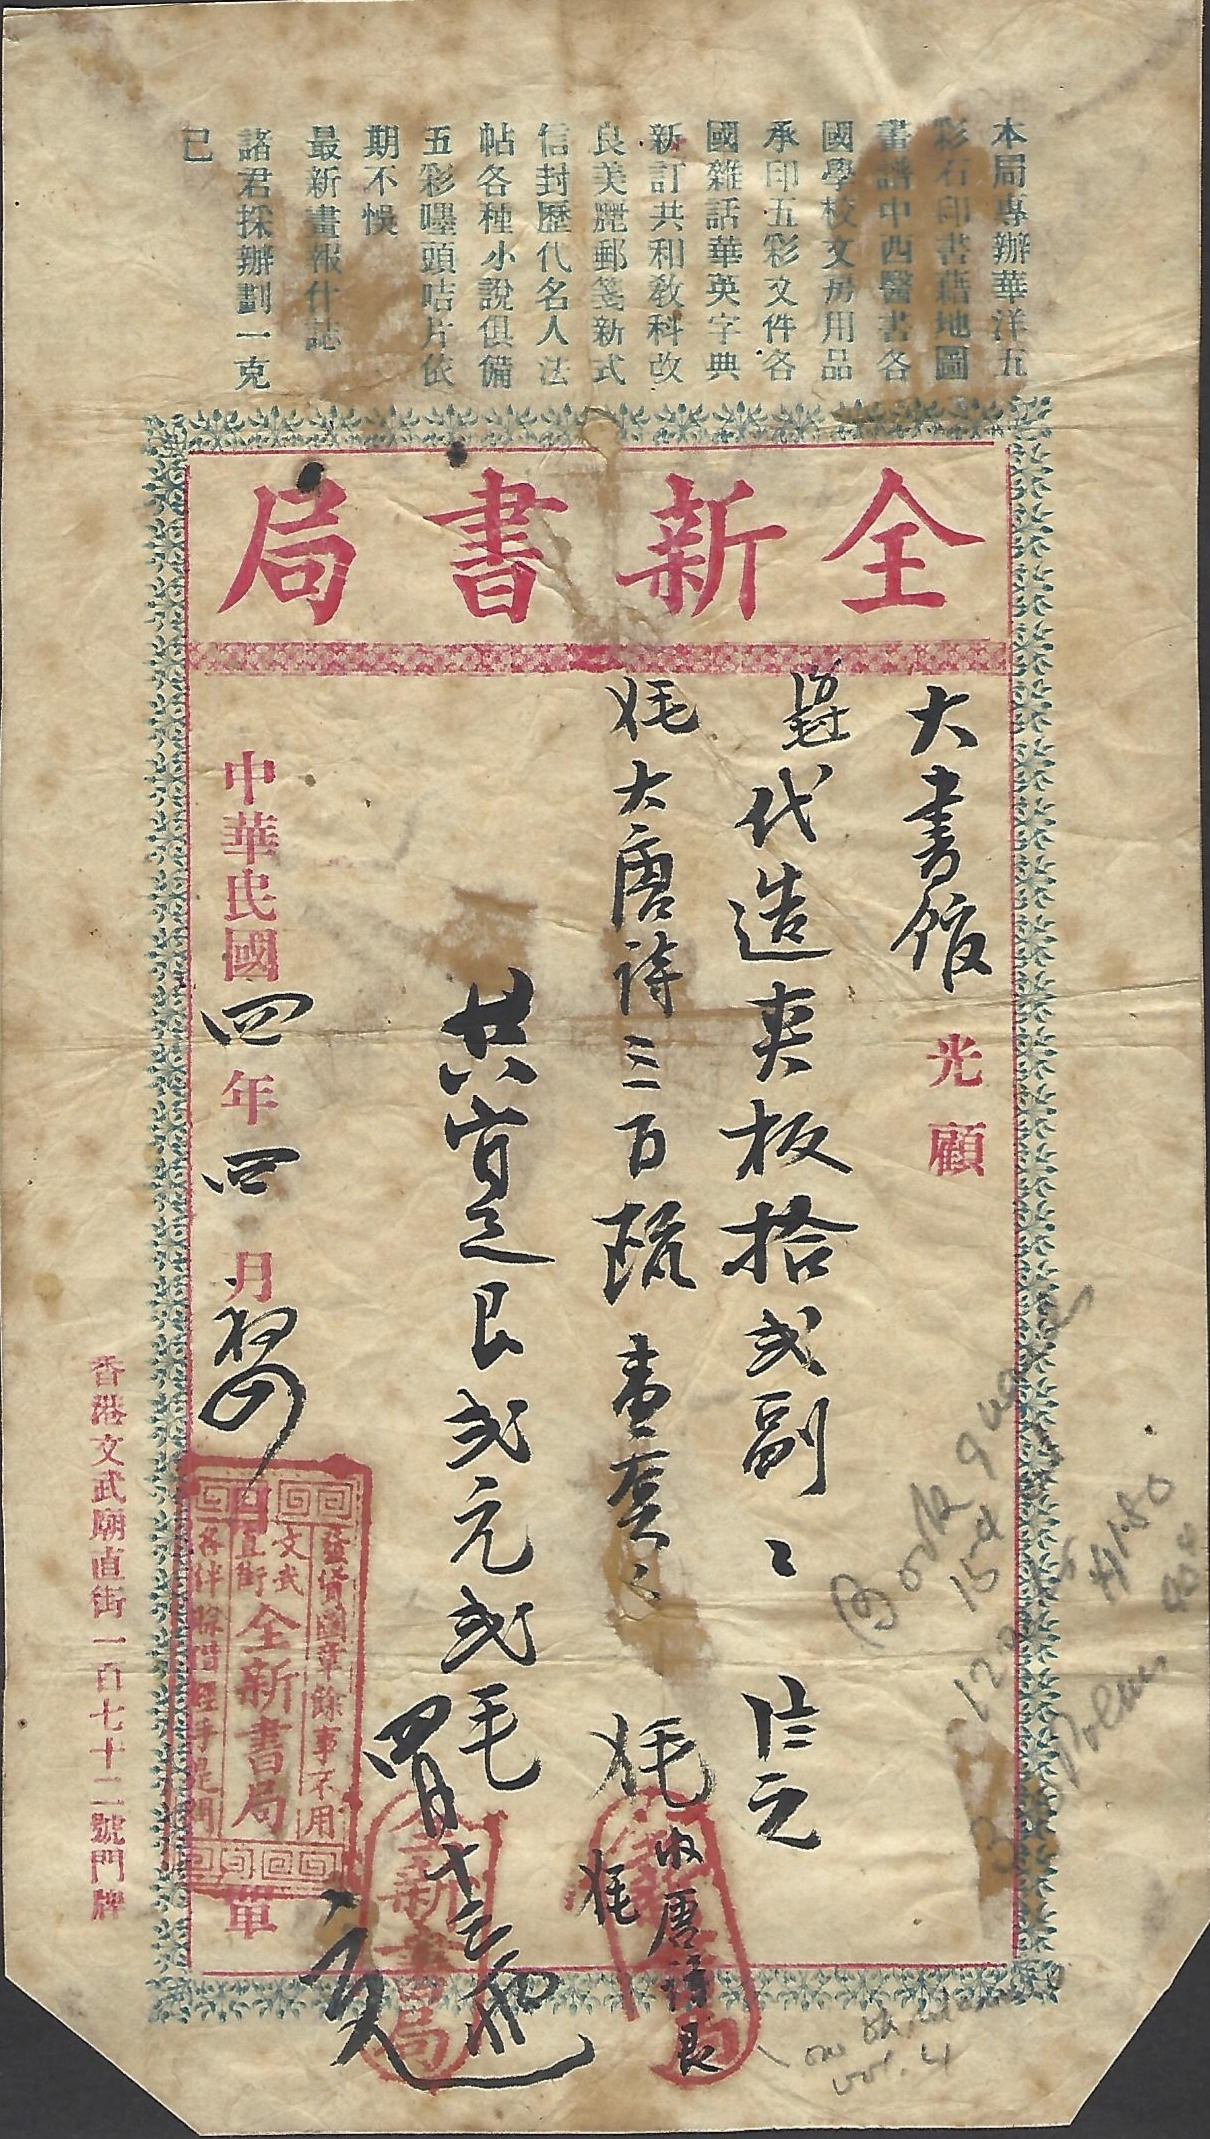 本局專辦華洋五
彩石印書籍地圖
畫譜中西醫書各
國學校文房用品
承印五彩文件各
國雜話華英字典
新訂共和教科改
良美麗郵箋新式
信封歷代名人法
帖各種小說俱備
五彩嘜頭咭片依
期不悞
最新畫報什誌
諸君採辦劃一克
已
全新書局
大書館 光顧
代造夾板拾弍副
大唐詩三百 壹套
共 弍元弍毛
收唐詩艮
中華民國四年四月 單
發貨圖章餘事不用
文武直街
全新書局
各伴賒借經手是問
全新書局
全新書局
香港文武廟直街一百七十二號門牌
Book
vol. 4